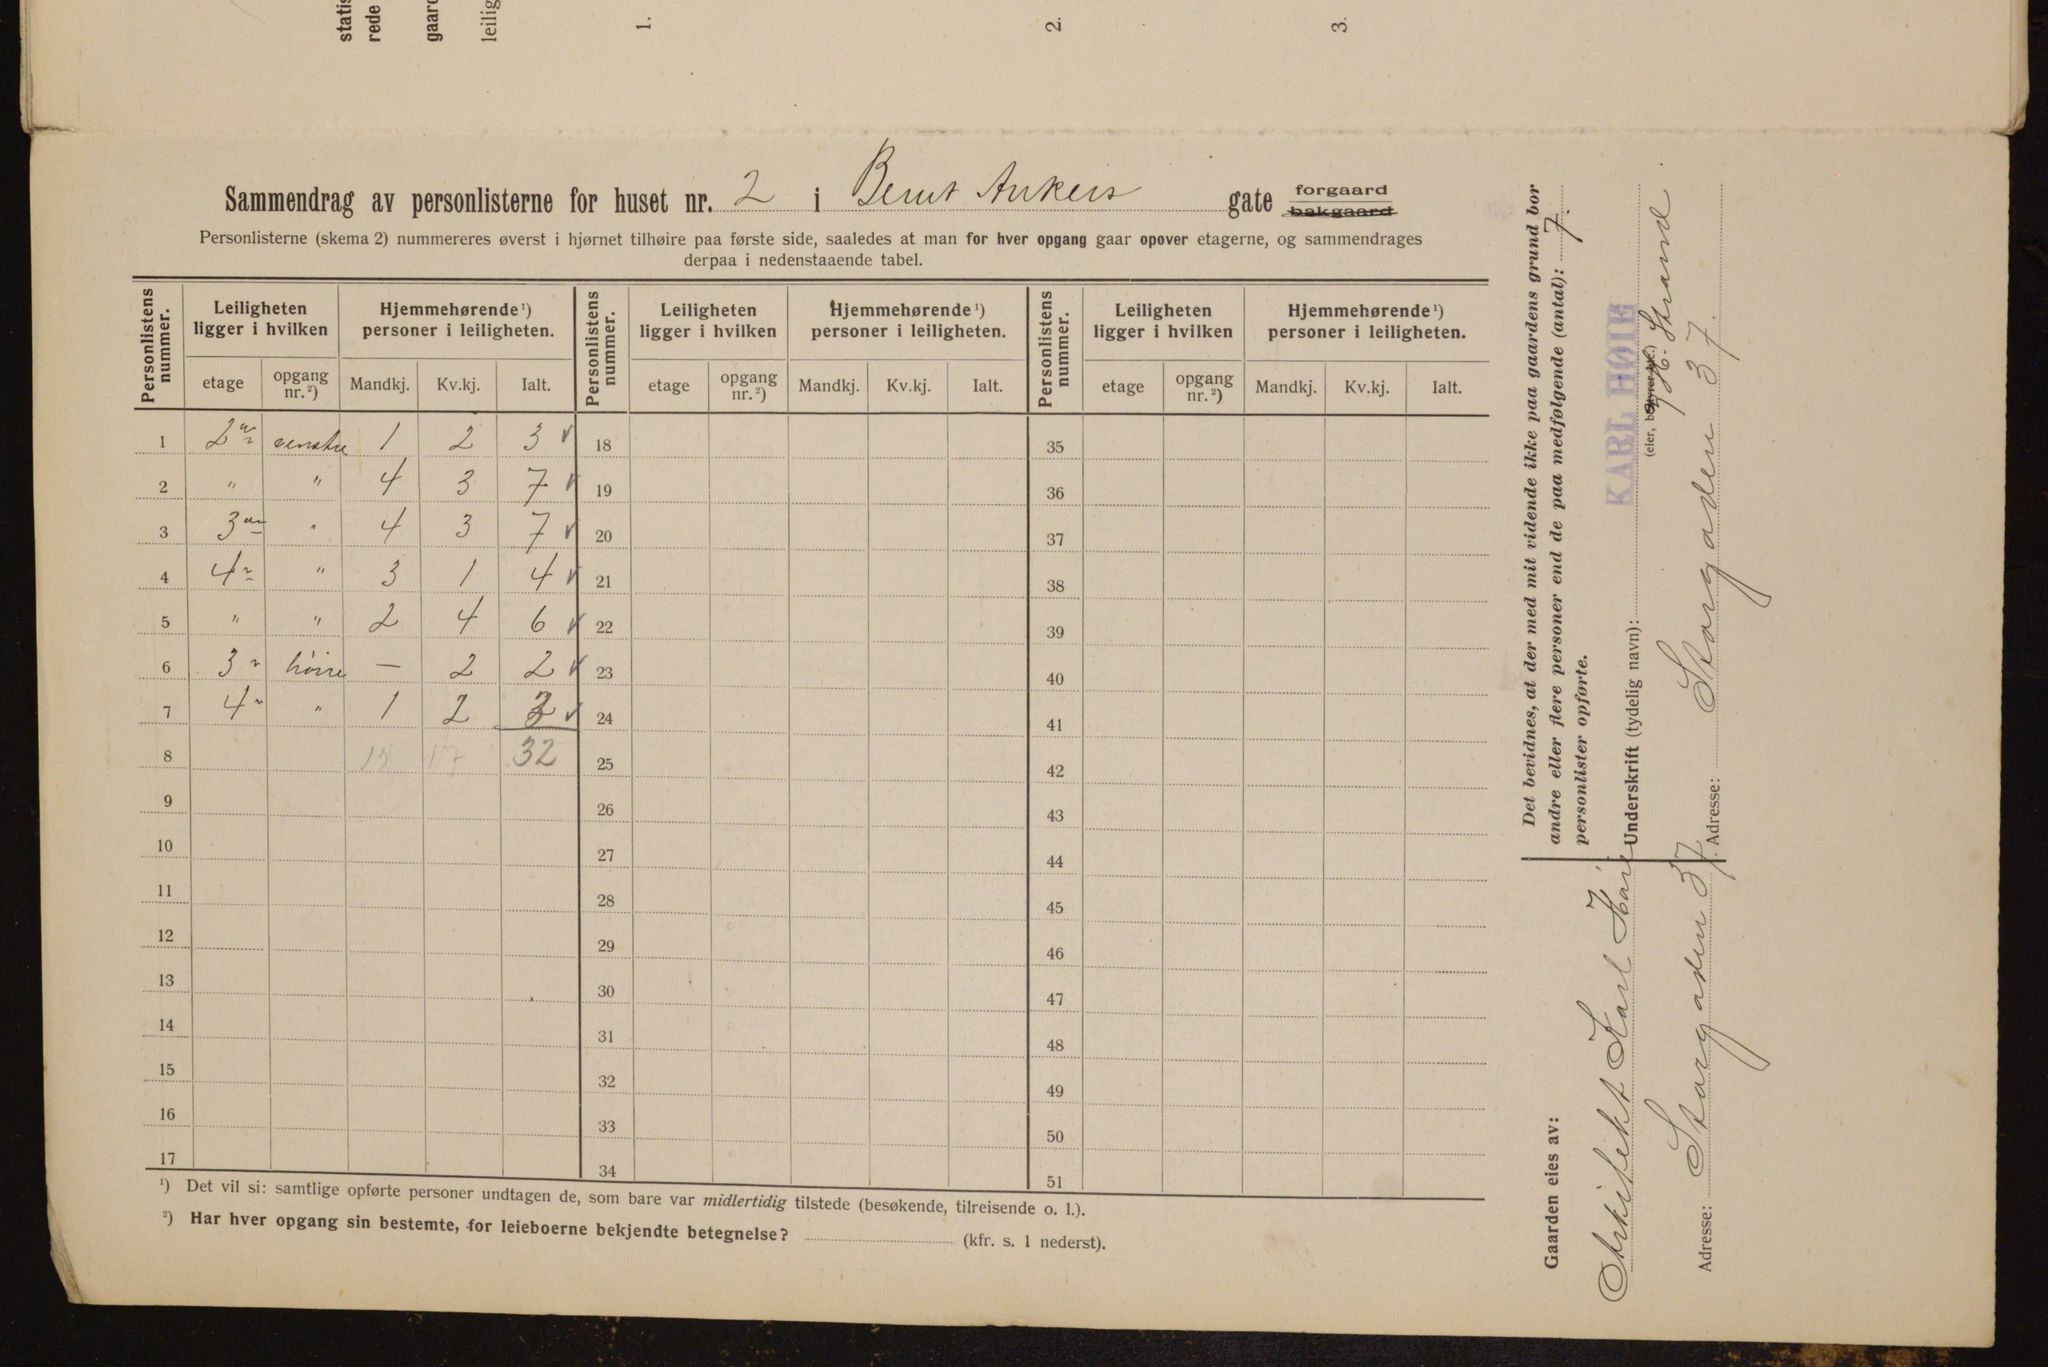 statis
rede
gaard
leilig
1.
2.
3.
Sammendrag av personlisterne for huset nr. 2 i Bernt Ankers gate forgaard
bakgaard
Personlisterne (skema 2) nummereres øverst i hjørnet tilhøire paa første side, saaledes at man for hver opgang gaar opover etagerne, og sammendrages
derpaa i nedenstaaende tabel.
Personlistens nummer. Leiligheten ligger i hvilken Hjemmehørende ¹) personer i leiligheten. Personlistens nummer. Leiligheten ligger i hvilken Hjemmehørende ¹) personer i leiligheten. Personlistens nummer. Leiligheten ligger i hvilken Hjemmehørende ¹) personer i leiligheten.
etage opgang nr. ²) Mandkj. Kv.kj. Ialt. etage opgang nr. ²) Mandkj. Kv.kj. Ialt. etage opgang nr. ²) Mandkj. Kv.kj. Ialt.
1 2 venstre 1 2 3 ✓ 18 35
2 " " 4 3 7 ✓ 19 36
3 3 " 4 3 7 ✓ 20 37
4 4 " 3 1 4 ✓ 21 38
5 " " 2 4 6 ✓ 22 39
6 3 høire — 2 2 ✓ 23 40
7 4 " 1 2 3 ✓ 24 41
8 15 17 32 25 42
9 26 43
10 27 44
11 28 45
12 29 46
13 30 47
14 31 48
15 32 49
16 33 50
17 34 51
¹) Det vil si: samtlige opførte personer undtagen de, som bare var midlertidig tilstede (besøkende, tilreisende o. l.).
²) Har hver opgang sin bestemte, for leieboerne bekjendte betegnelse? (kfr. s. 1 nederst).
Det bevidnes, at der med mit vidende ikke paa gaardens grund bor
andre eller flere personer end de paa medfølgende (antal): 7.
personlister opførte.
KARL HØIE
Underskrift (tydelig navn): H. Strand
(eier, bestyrer etc.)
Adresse: Storgaden 37.
Gaarden eies av:
Arkitekt Karl Høie
Adresse: Storgaden 37.